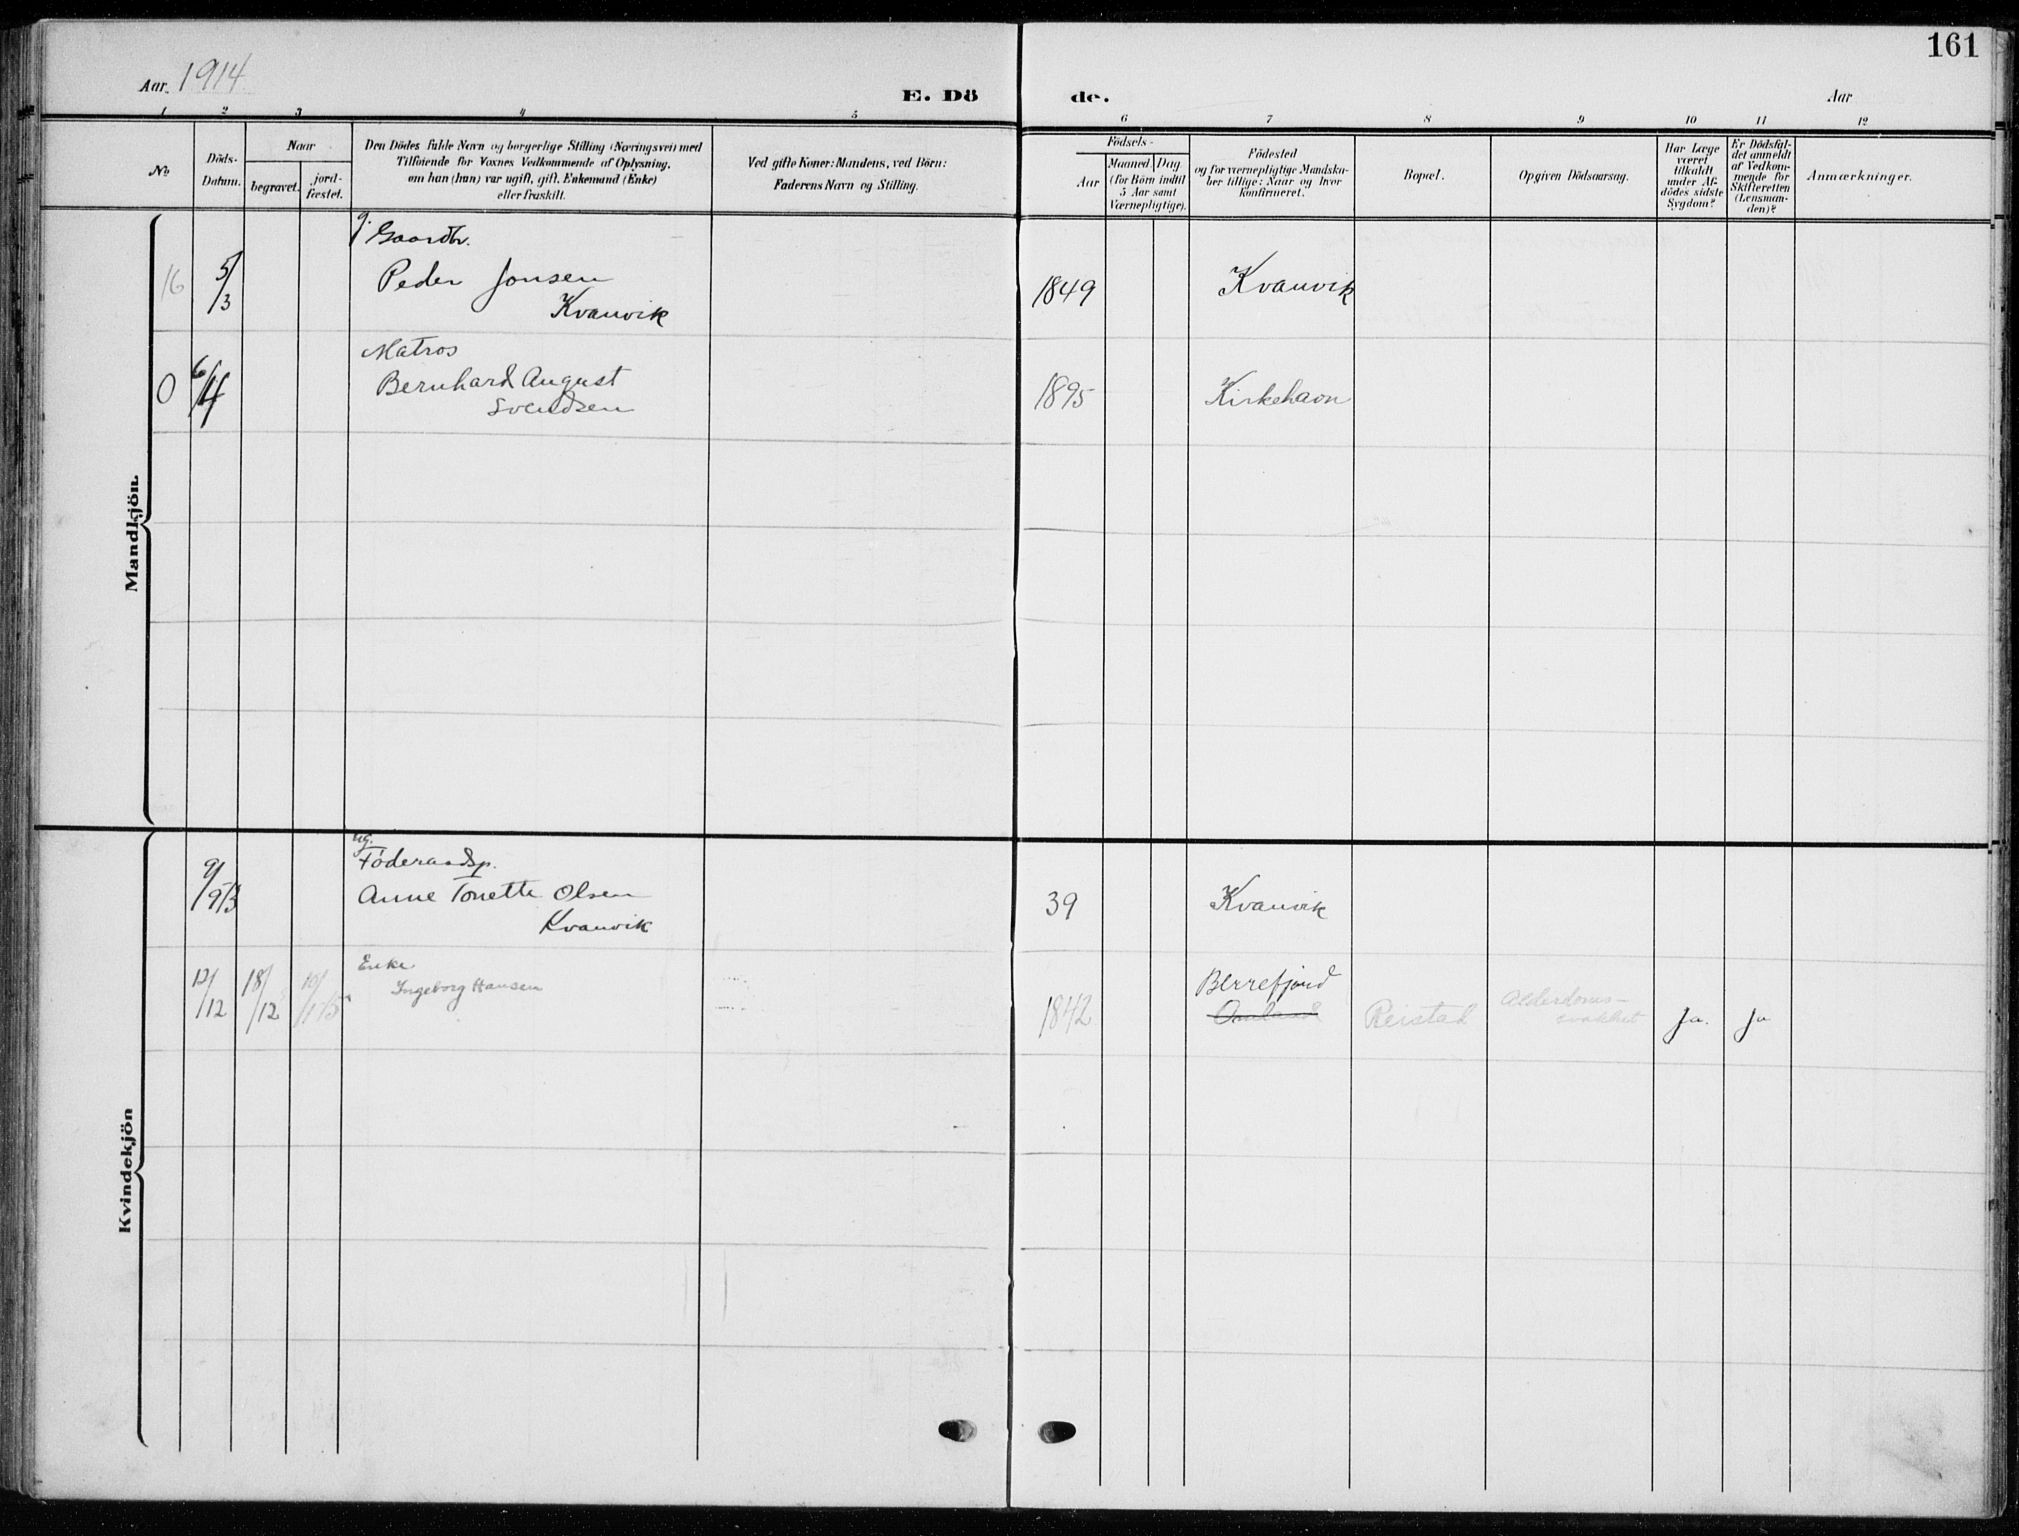 161
Aar. 1914
E. Dö de.
Aar
1 2 3 4 5 6 7 8 9 10 11 12
No
Döds-
Datum.
Naar
begravet.
jord-
fæstet.
Den Dödes fulde Navn og borgerlige Stilling (Næringsvei) med
Tilföiende for Voxnes Vedkommende af Oplysning,
om han (hun) var ugift, gift, Enkemand (Enke)
eller fraskilt.
Ved gifte Koner: Mandens, ved Börn:
Faderens Navn og Stilling.
Födsels-
Aar
Maaned.
Dag
(for Börn indtil
5 Aar samt
Værnepligtige).
Födested
og for værnepligtige Mandska-
ber tillige: Naar og hvor
konfirmeret.
Bopæl.
Opgiven Dödsaarsag.
Har Læge
været
tilkaldt
under Af-
dödes sidste
Sygdom?
Er Dödsfal-
det anmeldt
af Vedkom-
mende for
Skifteretten
(Lensman-
den)?
Anmærkninger.
Mandkjön.
g. Gaardbr.
16 5/3 Peder Jonsen
Kvanvik
1849 Kvanvik
Matros
0 6/4 Bernhard August
Svendsen
1895 Kirkehavn
Kvindekjön
ug.
Föderaadsp.
9/3 Anne Tonette Olsen
Kvanvik
39 Kvanvik
Enke
12/12 18/12 Ingeborg Hansen
1842 Berrefjord
Reistad Alderdoms-
svakhet
Ja. Ja